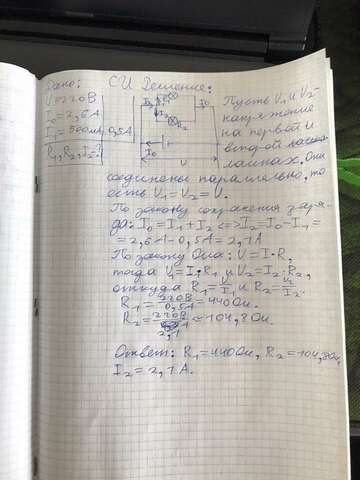 Дано: СИ Решение:
U=220В
I₀=2,6А
I₁=500мА 0,5А
R₁,R₂,I₂-?
I₀ R₂
I₀ U
Пусть U₁ и U₂-
напряжение
на первой и
второй
лампах. Они
соединены параллельно, то
есть U₁=U₂=U.
По закону сохранения заря-
да: I₀=I₁+I₂<=>I₂=I₀-I₁=
=2,6А-0,5А=2,1А
По закону Ома: U=I·R,
тогда U=I₁·R₁ и U₂=I₂·R₂,
откуда R₁=U/I₁ и R₂=U/I₂.
R₁=220В/0,5А=440Ом.
R₂=220В/2,1≈104,8Ом.
Ответ: R₁=440Ом, R₂=104,8Ом,
I₂=2,1А.